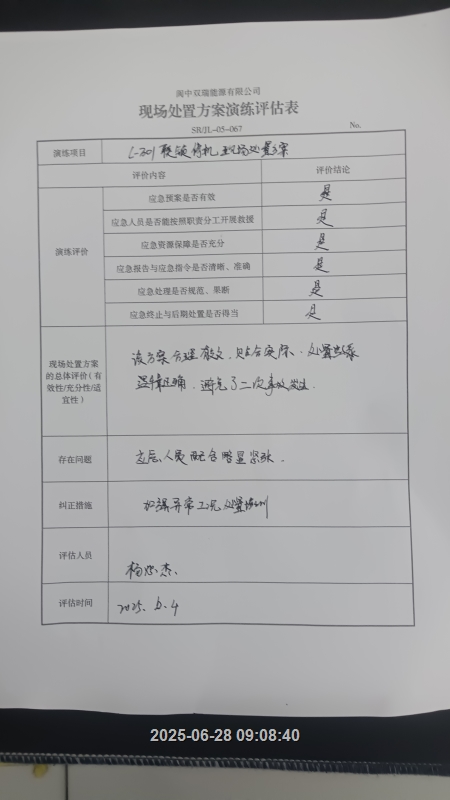 阆中双瑞能源有限公司
现场处置方案演练评估表
SR/JL-05-067
No.
演练项目 C-301联锁停机现场处置方案
评价内容 评价结论
演练评价
应急预案是否有效 是
应急人员是否能按照职责分工开展救援 是
应急资源保障是否充分 是
应急报告与应急指令是否清晰、准确 是
应急处理是否规范、果断 是
应急终止与后期处置是否得当 是
现场处置方案的总体评价(有效性/充分性/适宜性)
该方案合理有效,贴合实际,处置
正确,避免了二次事故发生.
存在问题 应急人员配合略显紧张.
纠正措施 加强异常工况处置培训
评估人员 杨 杰.
评估时间 2025.6.4
2025-06-28 09:08:40